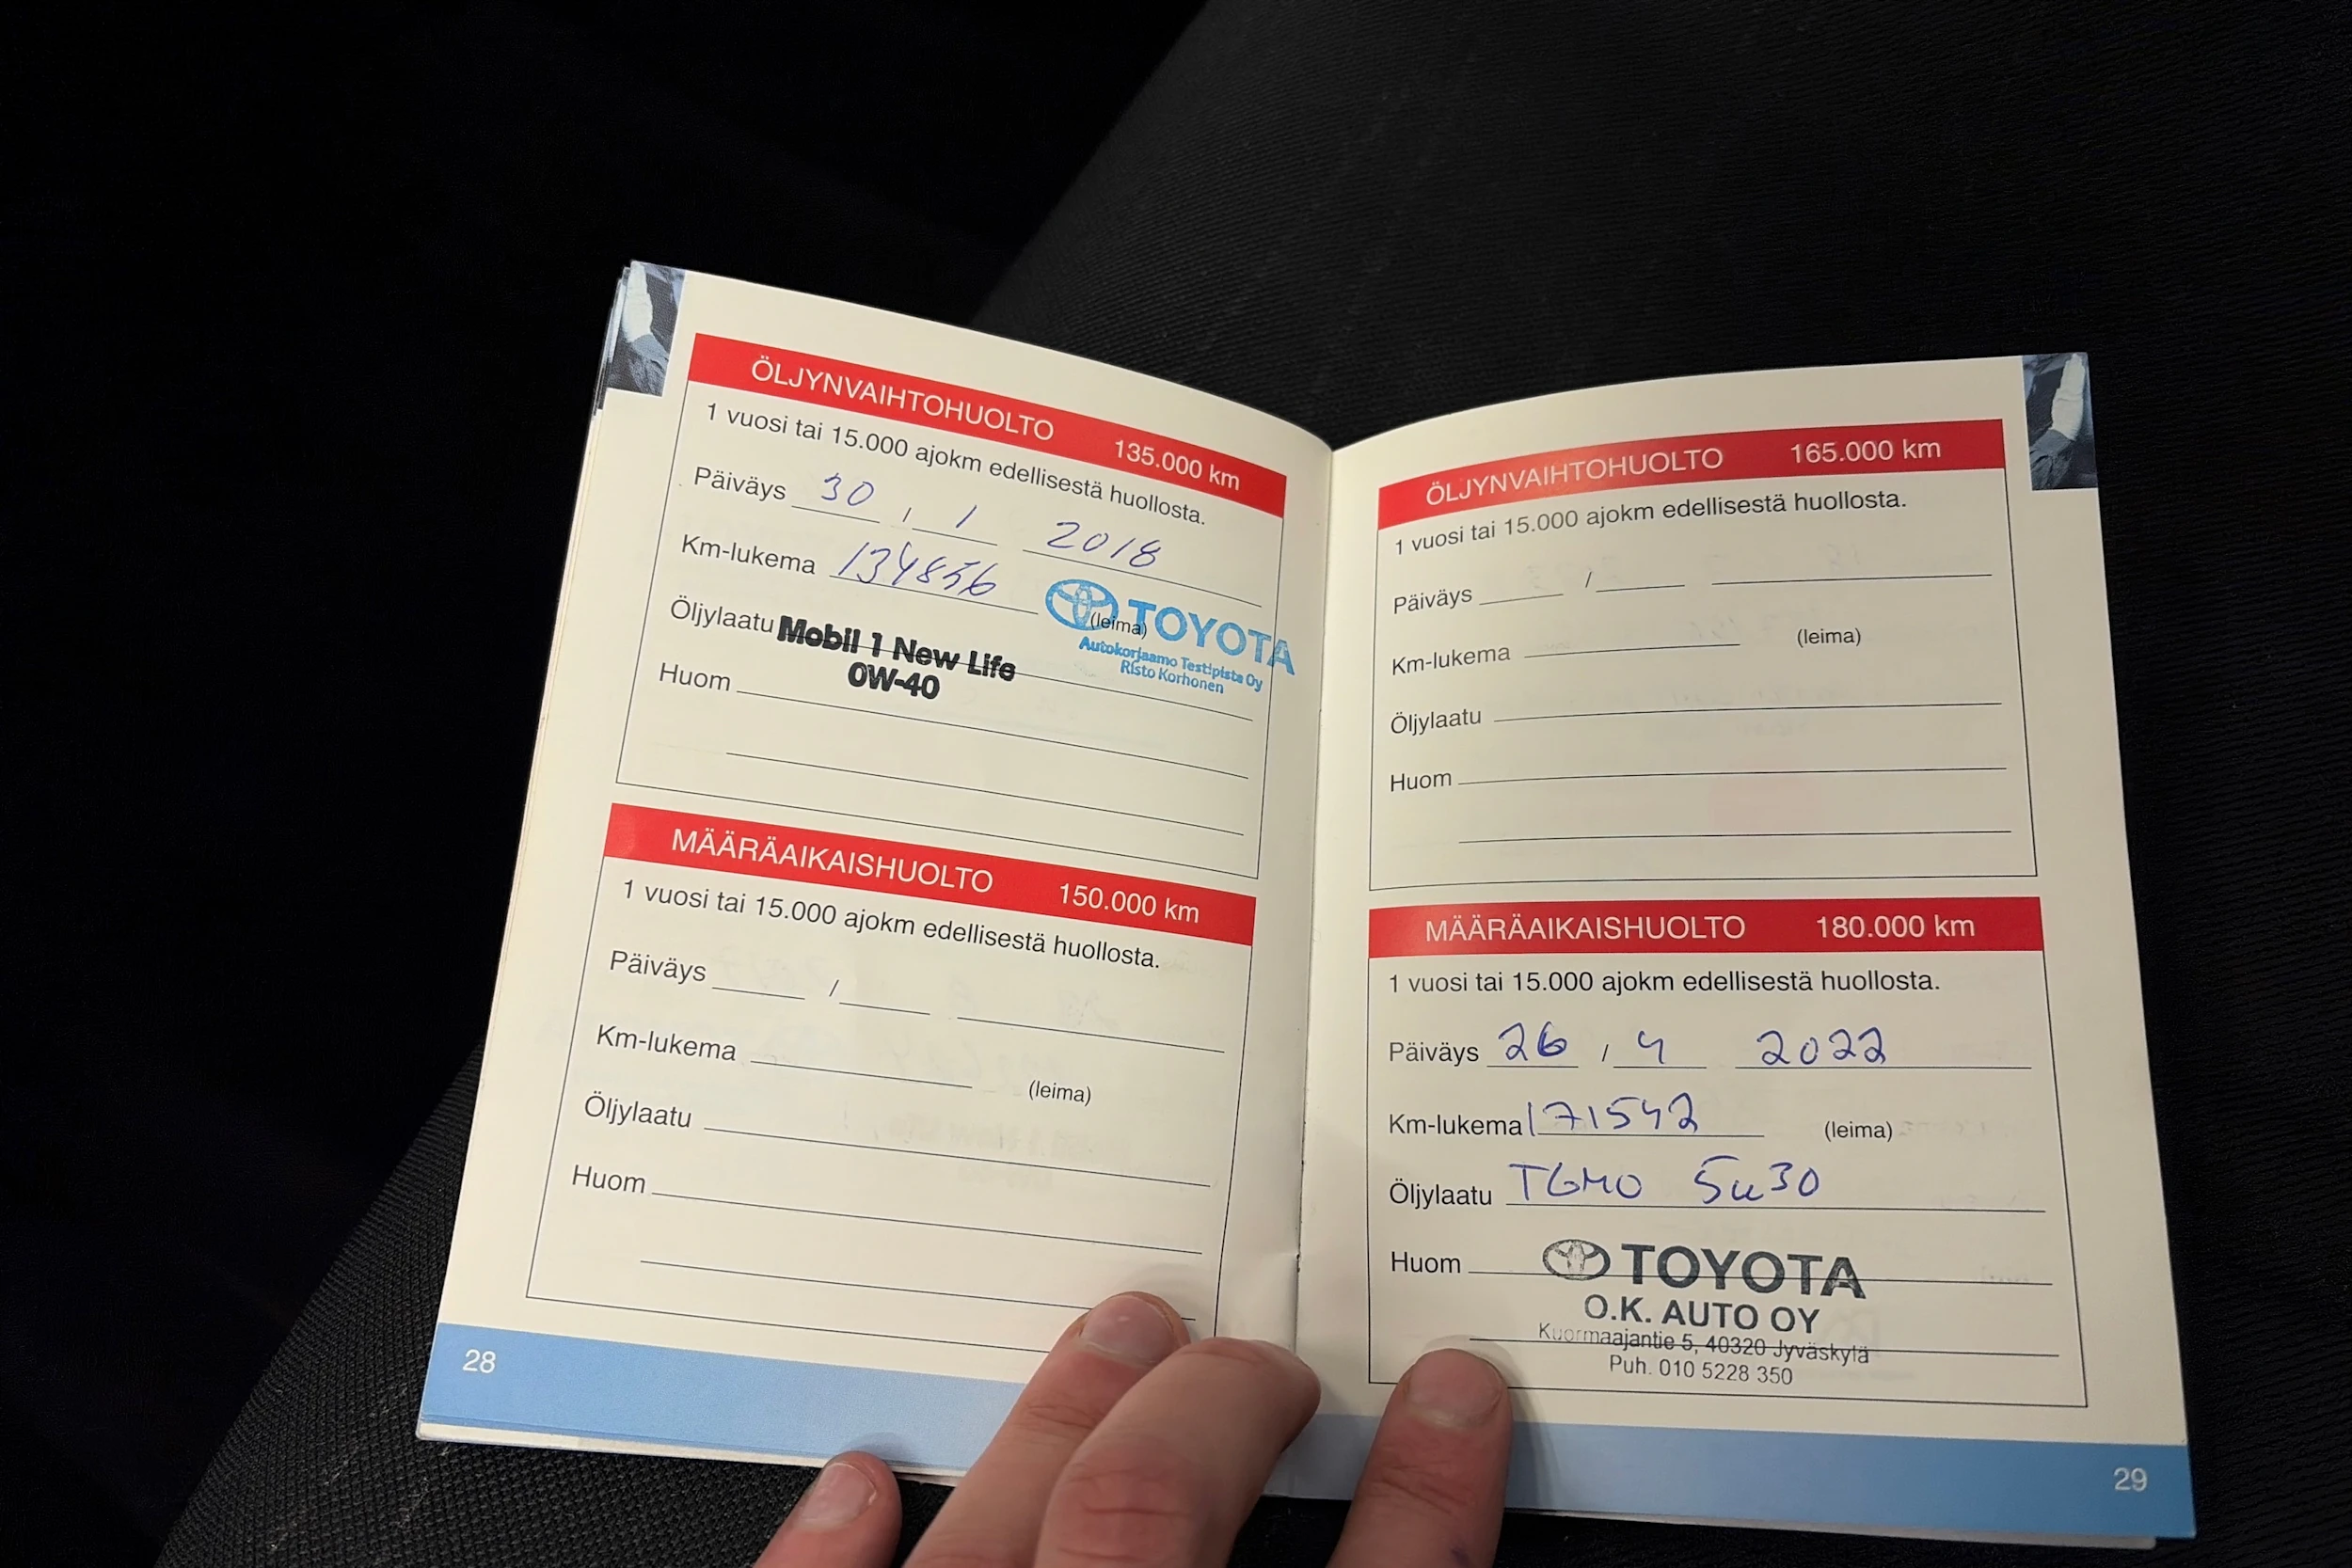 ÖLJYNVAIHTOHUOLTO 135.000 km
1 vuosi tai 15.000 ajokm edellisestä huollosta.
Päiväys 30 / 1 2018
Km-lukema 134856
(leima)
TOYOTA
Autokorjaamo Testipista Oy
Risto Korhonen
Öljylaatu Mobil 1 New Life
0W-40
Huom
MÄÄRÄAIKAISHUOLTO 150.000 km
1 vuosi tai 15.000 ajokm edellisestä huollosta.
Päiväys /
Km-lukema (leima)
Öljylaatu
Huom
28
ÖLJYNVAIHTOHUOLTO 165.000 km
1 vuosi tai 15.000 ajokm edellisestä huollosta.
Päiväys /
Km-lukema (leima)
Öljylaatu
Huom
MÄÄRÄAIKAISHUOLTO 180.000 km
1 vuosi tai 15.000 ajokm edellisestä huollosta.
Päiväys 26 / 4 2022
Km-lukema 171542 (leima)
Öljylaatu TGMO 5w30
Huom
TOYOTA
O.K. AUTO OY
Kuormaajantie 5, 40320 Jyväskylä
Puh. 010 5228 350
29